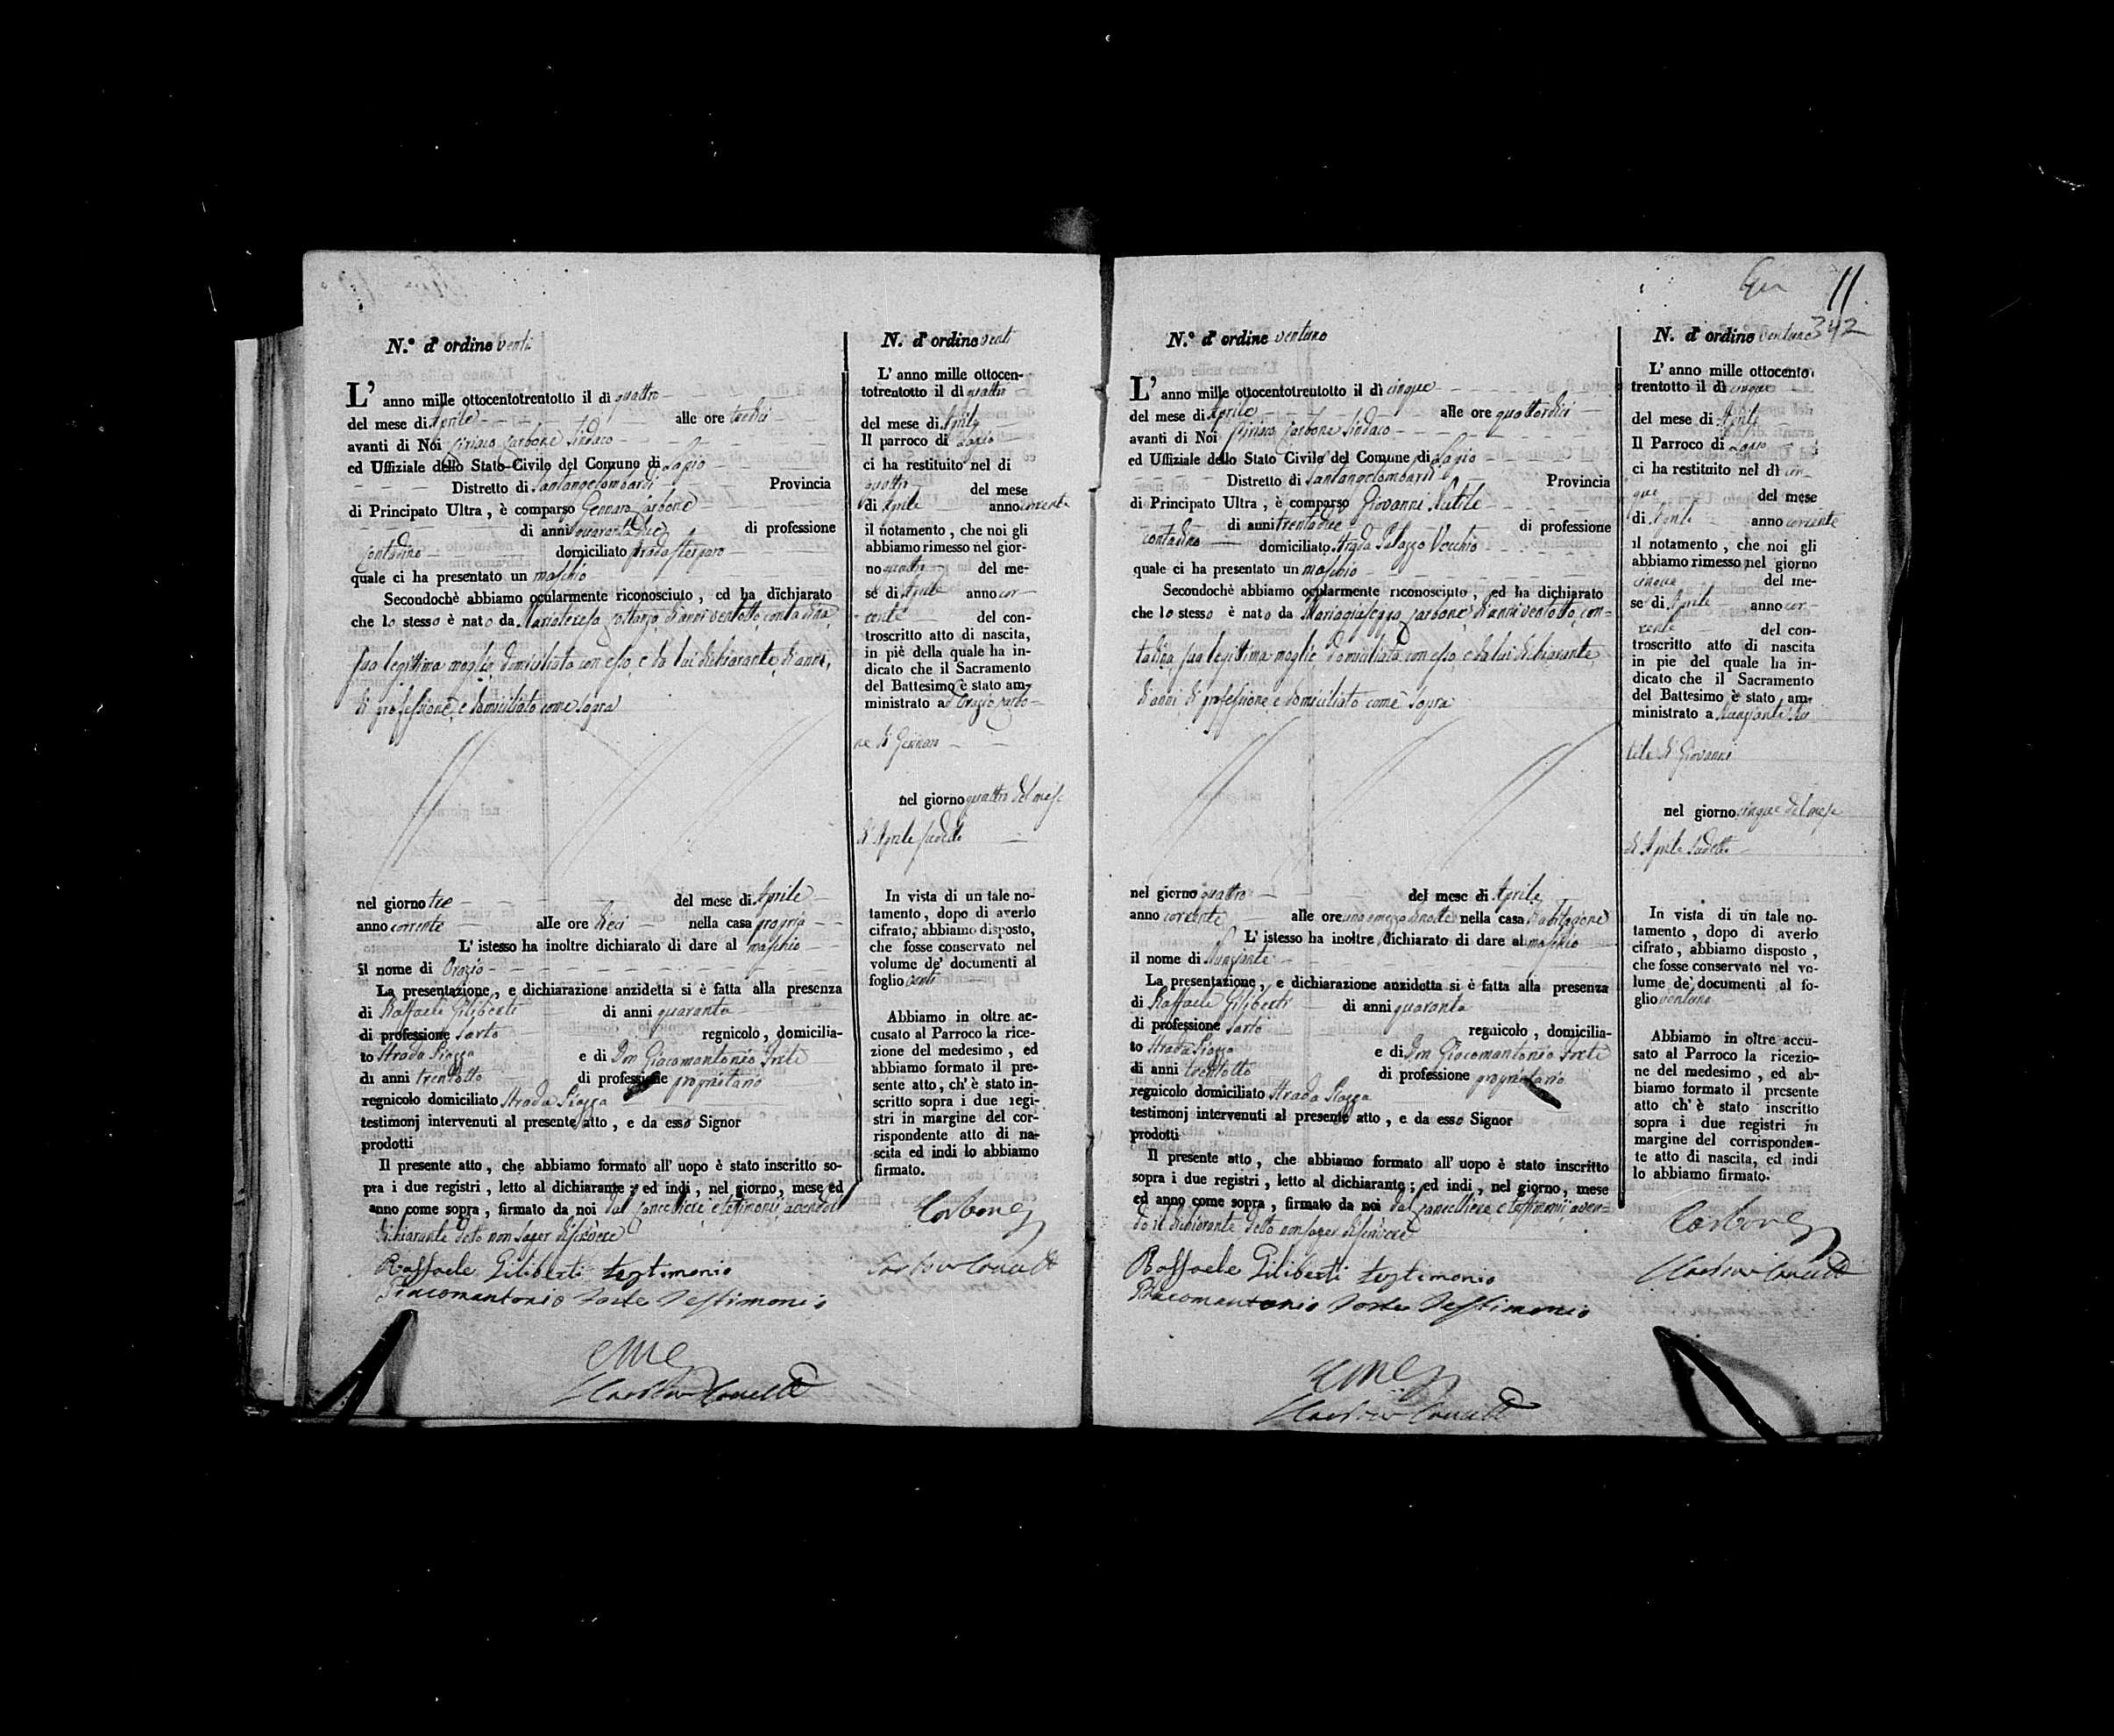 N.° d'ordine venti
L' anno mille ottocentotrentotto il dì quattro
del mese di Aprile alle ore tredici
avanti di Noi Ciriaco Carbone Sindaco
ed Uffiziale dello Stato Civile del Comune di Lapio
Distretto di Santangelombardi Provincia
di Principato Ultra , è comparso Gennaro Carbone
di anni quarantadue di professione
Contadino domiciliato strada
quale ci ha presentato un maschio
Secondochè abbiamo ocularmente riconosciuto , ed ha dichiarato
che lo stesso è nato da Mariateresa di anni ventotto, contadina,
sua legittima moglie domiciliata con esso, e da lui dichiarante, di anni,
di professione, e domiciliato come sopra
nel giorno tre del mese di Aprile
anno corrente alle ore dieci nella casa propria
L' istesso ha inoltre dichiarato di dare al maschio
il nome di Orazio
La presentazione, e dichiarazione anzidetta si è fatta alla presenza
di Raffaele Giliberti di anni quaranta
di professione Sarto regnicolo , domicilia-
to Strada Piazza e di Don Giacomantonio Forte
di anni trentotto di professione proprietario
regnicolo domiciliato Strada Piazza
testimonj intervenuti al presente atto , e da esso Signor
prodotti
Il presente atto , che abbiamo formato all' uopo è stato inscritto so-
pra i due registri , letto al dichiarante ; ed indi , nel giorno, mese ed
anno come sopra , firmato da noi dal Cancelliere, e testimonii avendo il
dichiarante detto non saper discrivere
Raffaele Giliberti testimonio
Giacomantonio Forte Testimonio
N. d'ordine venti
L' anno mille ottocen-
totrentotto il dì quattro
del mese di Aprile
Il parroco di Lapio
ci ha restituito nel di
quattro del mese
di Aprile anno corrente
il notamento , che noi gli
abbiamo rimesso nel gior-
no quattro del me-
se di Aprile anno cor-
rente del con-
troscritto atto di nascita,
in piè della quale ha in-
dicato che il Sacramento
del Battesimo è stato am-
ministrato ad Orazio Carbo-
ne di Gennaro
nel giorno quattro del mese
di Aprile sudetto
In vista di un tale no-
tamento , dopo di averlo
cifrato, abbiamo disposto,
che fosse conservato nel
volume de' documenti al
foglio venti
Abbiamo in oltre ac-
cusato al Parroco la rice-
zione del medesimo , ed
abbiamo formato il pre-
sente atto, ch' è stato in-
scritto sopra i due regi-
stri in margine del cor-
rispondente atto di na-
scita ed indi lo abbiamo
firmato.
Carbone
11
342
N.° d'ordine ventuno
L' anno mille ottocentotrentotto il dì cinque
del mese di Aprile alle ore quattordici
avanti di Noi Ciriaco Carbone Sindaco
ed Uffiziale dello Stato Civile del Comune di Lapio
Distretto di Santangelombardi Provincia
di Principato Ultra , è comparso Giovanni
di anni trentadue di professione
contadino domiciliato Strada Palazzo Vecchio
quale ci ha presentato un maschio
Secondochè abbiamo ocularmente riconosciuto , ed ha dichiarato
che lo stesso è nato da Mariagiuseppa Carbone, di anni ventotto, con-
tadina, sua legittima moglie domiciliata con esso, e da lui dichiarante,
di anni, di professione, e domiciliato come sopra
nel giorno quattro del mese di Aprile
anno corrente alle ore una e mezza di notte nella casa di abitazione
L' istesso ha inoltre dichiarato di dare al maschio
il nome di Nunziante
La presentazione, e dichiarazione anzidetta si è fatta alla presenza
di Raffaele Giliberti di anni quaranta
di professione Sarto regnicolo , domicilia-
to Strada Piazza e di Don Giacomantonio Forte
di anni trentotto di professione proprietario
regnicolo domiciliato Strada Piazza
testimonj intervenuti al presente atto , e da esso Signor
prodotti
Il presente atto , che abbiamo formato all' uopo è stato inscritto
sopra i due registri , letto al dichiarante ; ed indi , nel giorno, mese
ed anno come sopra , firmato da noi dal Cancelliere, e testimonii, aven-
do il dichiarante detto non saper discrivere
Raffaele Giliberti testimonio
Giacomantonio Forte Testimonio
N. d'ordine ventuno
L' anno mille ottocento
trentotto il dì cinque
del mese di Aprile
Il Parroco di Lapio
ci ha restituito nel dì cin-
que del mese
di Aprile anno corrente
il notamento , che noi gli
abbiamo rimesso nel giorno
cinque del me-
se di Aprile anno cor-
rente del con-
troscritto atto di nascita
in pie del quale ha in-
dicato che il Sacramento
del Battesimo è stato am-
ministrato a Nunziante
di Giovanni
nel giorno cinque del mese
di Aprile sudetto
In vista di un tale no-
tamento , dopo di averlo
cifrato, abbiamo disposto ,
che fosse conservato nel vo-
lume de' documenti al fo-
glio ventuno
Abbiamo in oltre accu-
sato al Parroco la ricezio-
ne del medesimo , ed ab-
biamo formato il presente
atto ch' è stato inscritto
sopra i due registri in
margine del corrisponden-
te atto di nascita, ed indi
lo abbiamo firmato.
Carbone